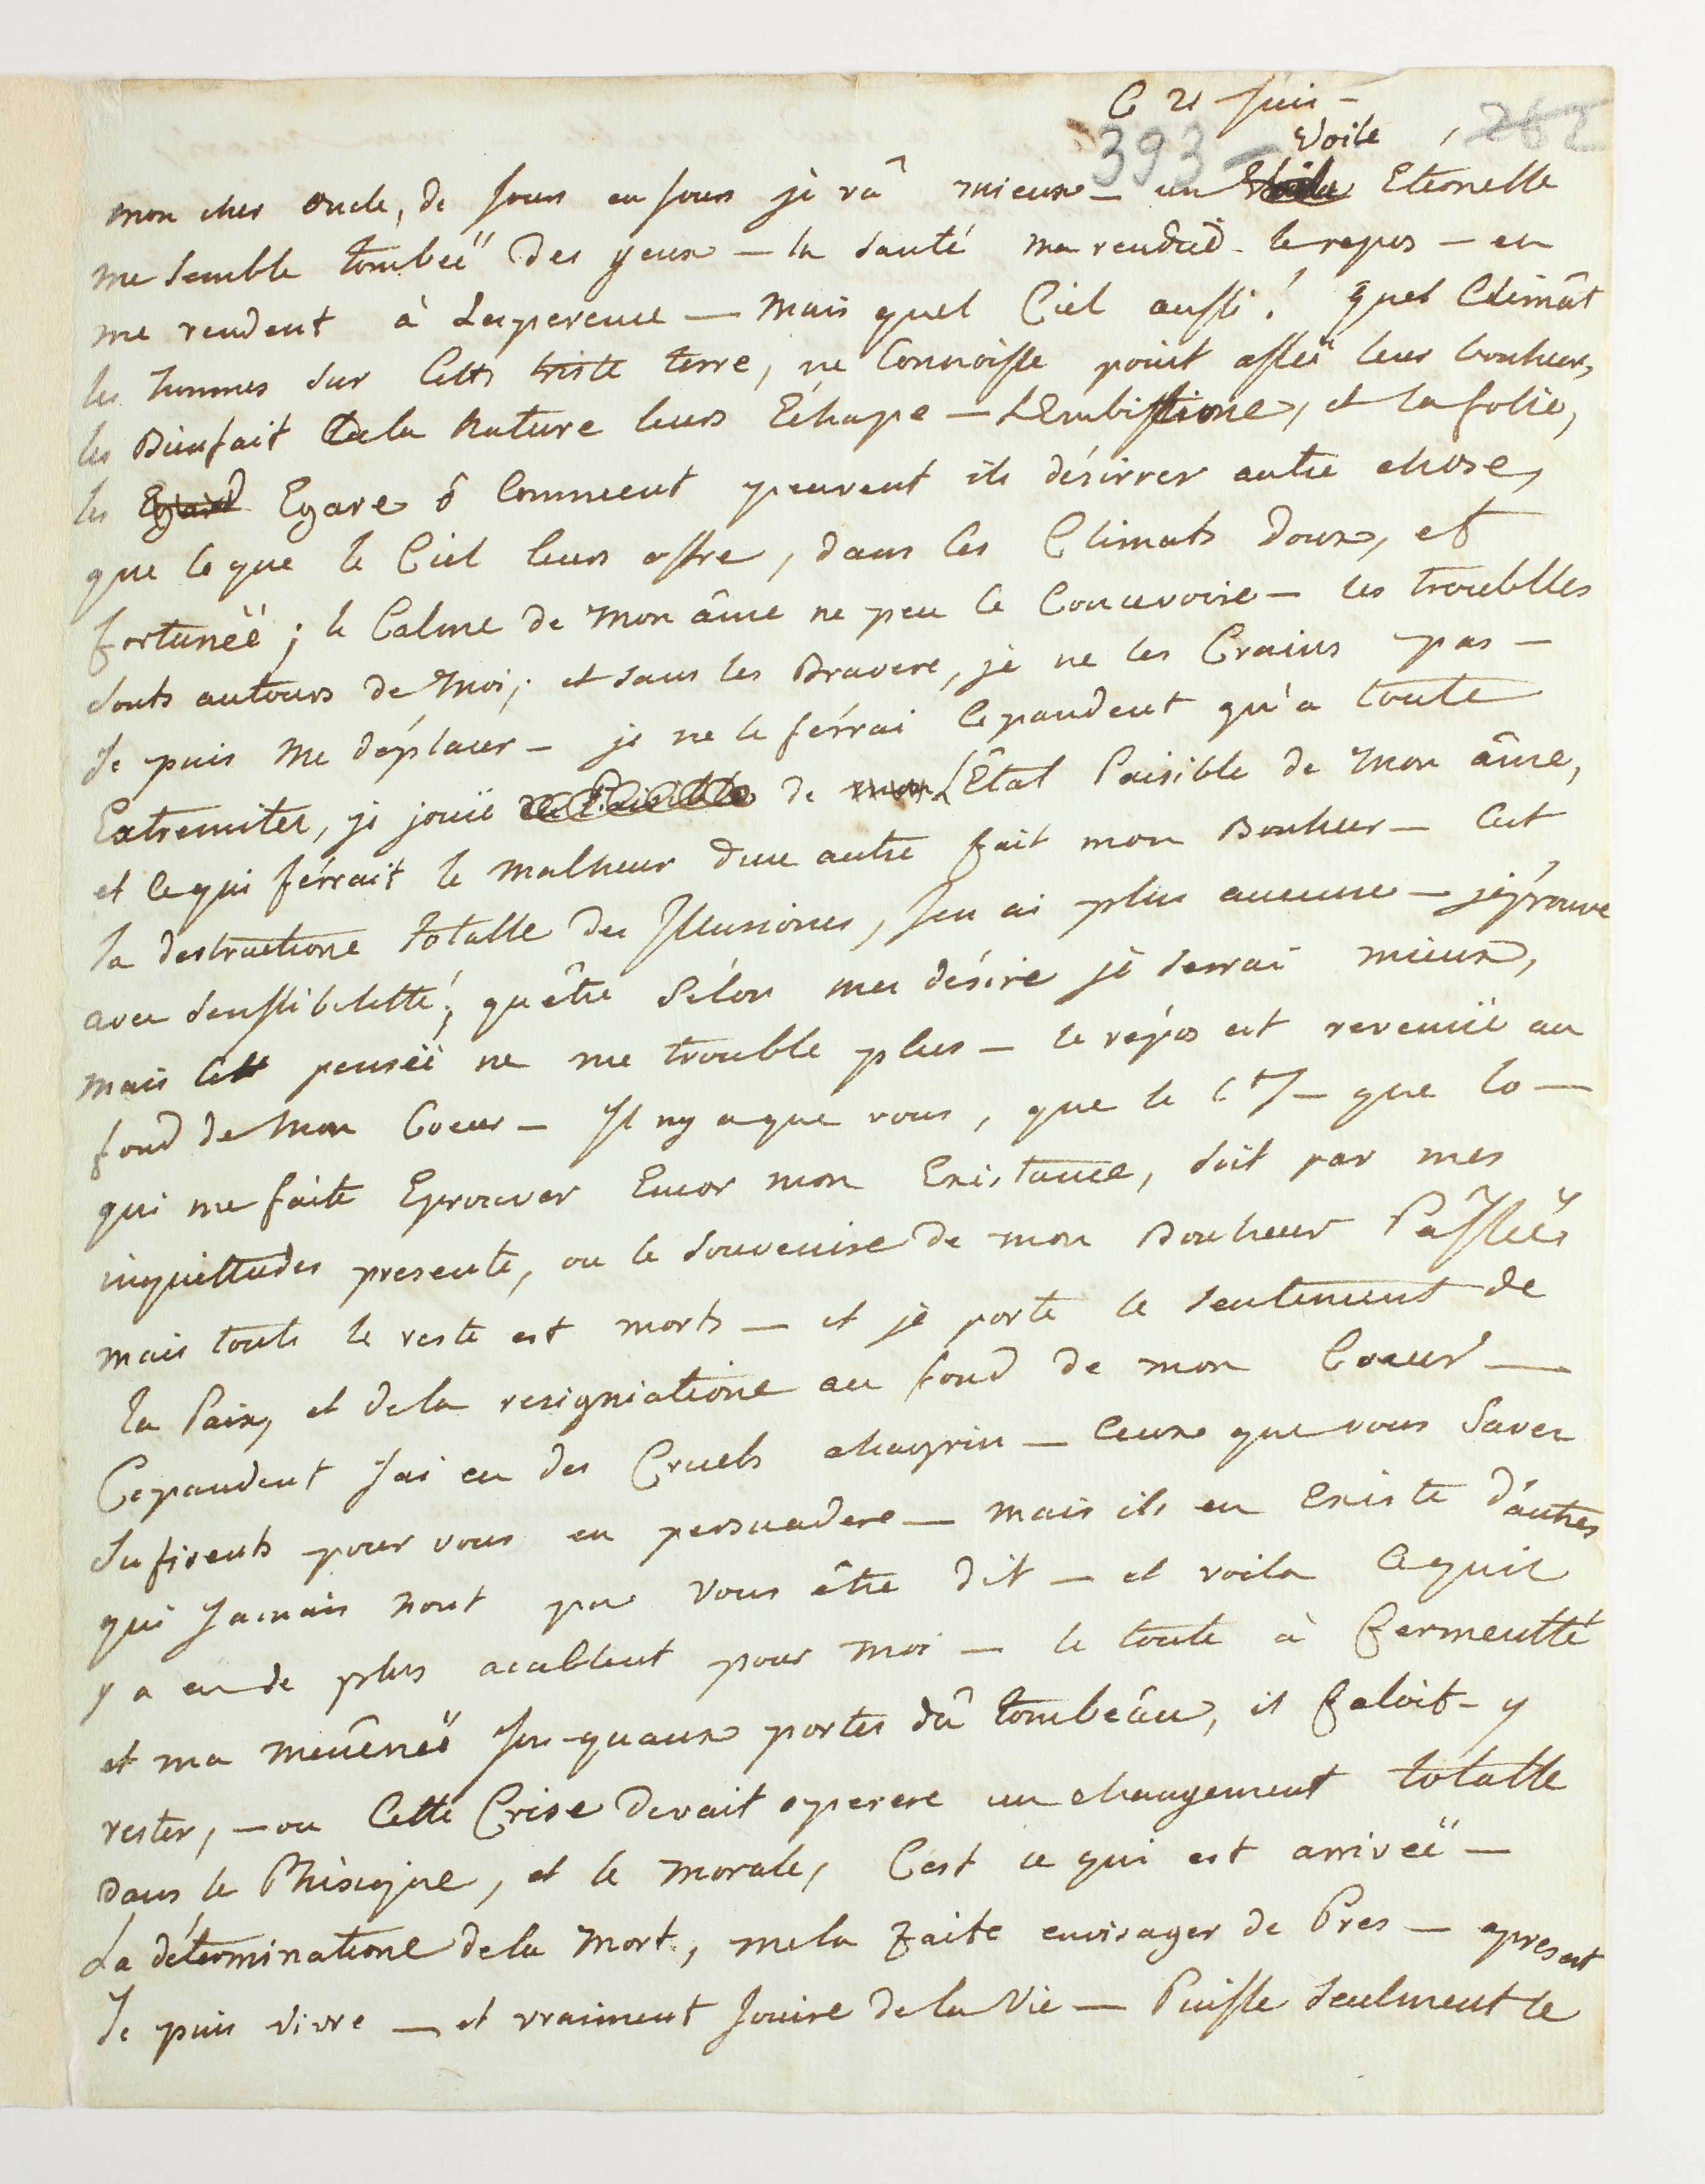 Ce 21 Juin -
393 - Voile 262
mon cher oncle, de jours en jours je vâ mieux - un Voila Eternelle
me semble tombeë des yeux - la santé ma rendue le repos - en
me rendent à Lesperence - mais quel Ciel aussi! quel Climât
les hommes sur Cette triste terre, ne Connoisse point asseë leur bonheur,
les Bienfait de la Nature leurs Echape - L'Embistione, et la folie,
les Egard Egare ô Comment peuvent ils désirrer autre chose,
que ce que le Ciel leurs offre, dans les Climats doux, et
fortuneë; le Calme de mon âme ne peu le Concevoire - les troublles
sonts autours de moi; et sans les Bravere, je ne les Crains pas -
Je puis me déplacer - je ne le férrai Cepandent qu'a toute
Extremiter, je jouïe de de mon L'Êtat Paisible de mon âme,
et ce qui férrait le malheur dune autre fait mon Bonheur - Cest
la destructione totalle des Illusiones, Jen ai plus aucune - jéprouve
avec senssibilitté; quêtre sélon mes désire je serrai mieux,
mais cette penseë ne me trouble plus - le répos est revenuë au
fond de mon Coeur - Il ny a que vous, que le Ct/- que lo -
qui me faite Eprouver Encor mon Existance, soit par mes
inquiettudes presente, ou le souvenire de mon Bonheur Passeës
mais touts le reste est morts - et je porte le sentiment de
la Paix, et de la resigniatione au fond de mon Coeur -
Cepandent Jai eu des Cruels chagrin - Ceux que vous Savez
sufirents pour vous en persuadere - mais ils en Existe d'autres
qui Jamais nont pu vous être dit - et voila ce quil
y a eu de plus acablent pour moi - le toute à fermentté
et ma meûeneë Jus-quaux portes dû tombeâu, il faloit - y
rester, - ou Cette Crise devait operere un changement totalle
dans le Phisique, et le morale, C'est ce qui est arriveë -
La déterminatione de la Mort, me la faite envisager de Pres - apresent
Je puis vivre - et vraiment Jouire de la Vie - Puisse seulment le